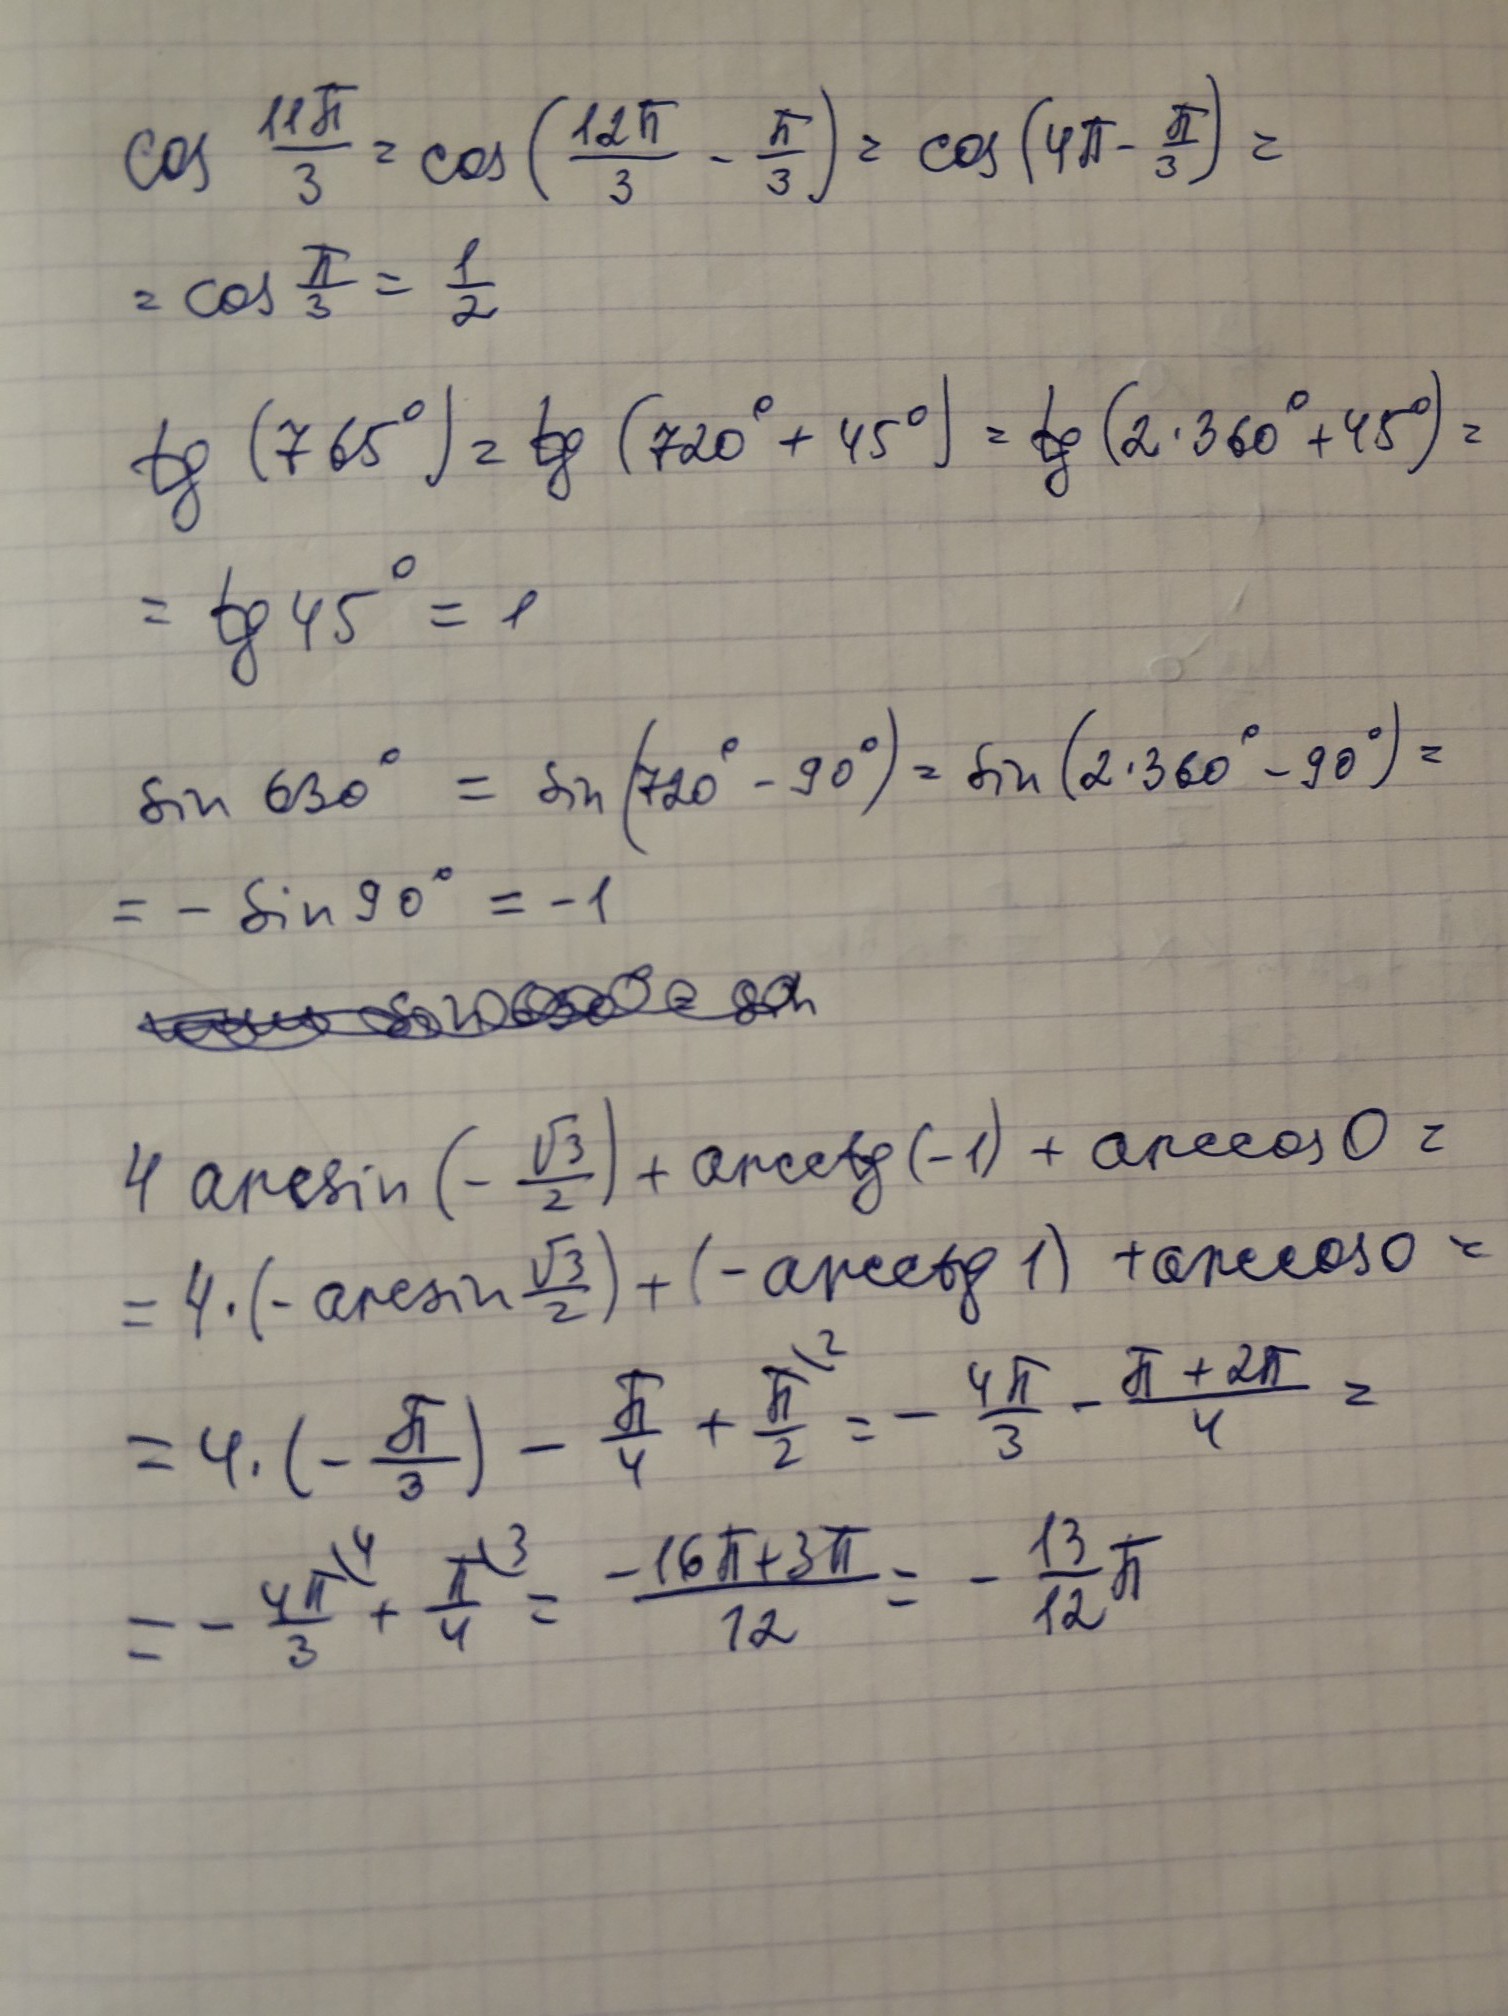 cos 11π/3 = cos(12π/3 - π/3) = cos(4π - π/3) =
= cos π/3 = 1/2
tg (765°) = tg (720° + 45°) = tg (2·360° + 45°) =
= tg 45° = 1
sin 630° = sin(720° - 90°) = sin(2·360° - 90°) =
= - sin 90° = -1
4 arcsin(-√3/2) + arcctg(-1) + arccos 0 =
= 4·(-arcsin √3/2) + (-arcctg 1) + arccos 0 =
= 4·(-π/3) - π/4 + π/2 \2 = - 4π/3 - π + 2π/4 =
= - 4π/3 \4 + π/4 \3 = -16π+3π/12 = - 13/12 π